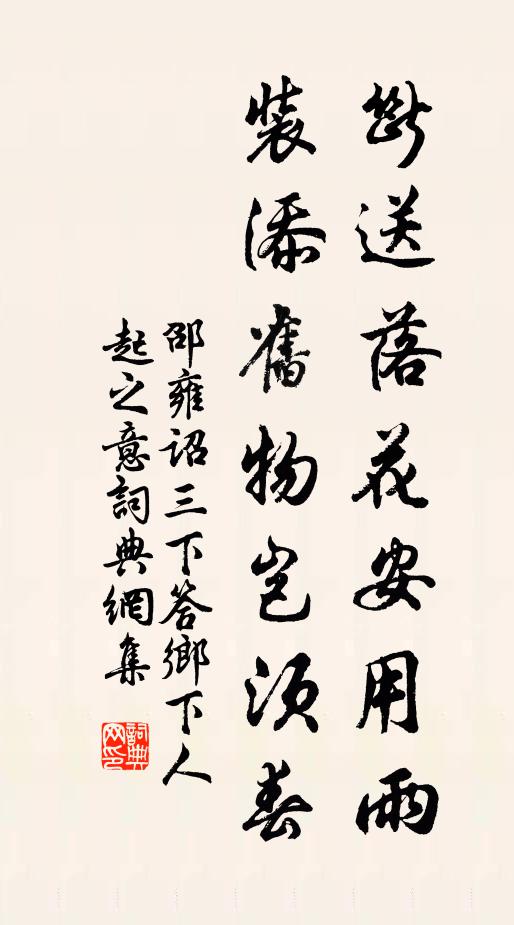 斷送落花安用雨
裝添舊物豈須春
邵雍詔三下答鄉下人
起之意詞典網集
詞典
网印